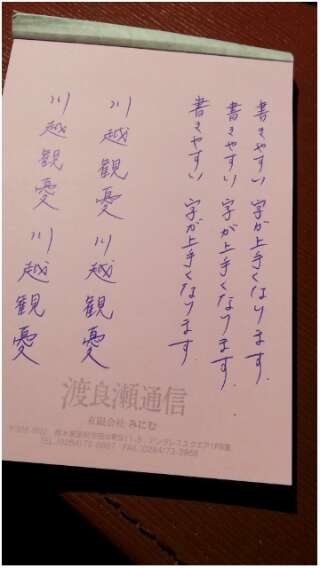 書きやすい 字が上手くなります.
書きやすい 字が上手くなります.
書きやすい 字が上手くなります.
川越観憂 川越観憂
川越観憂 川越観憂
渡良瀬通信
有限会社 みにむ